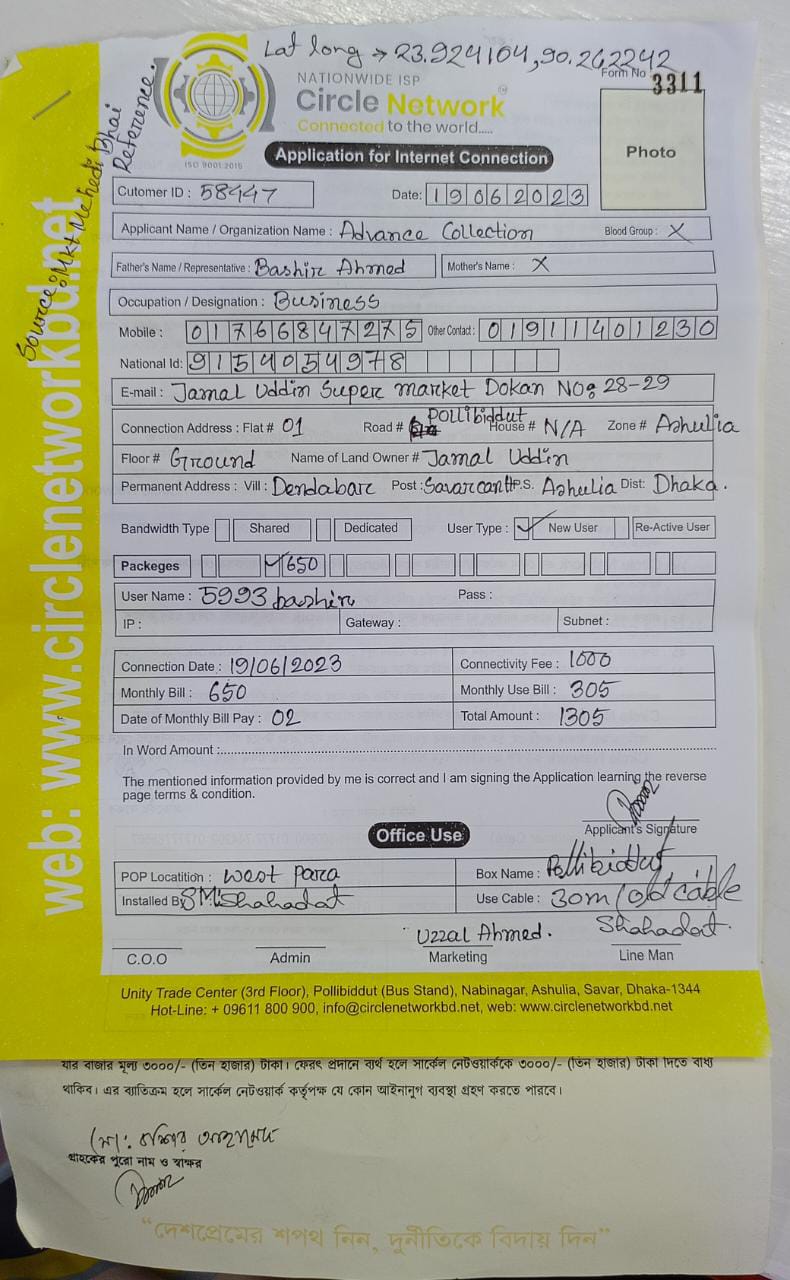 Lat long → 23.924104,90.262242
NATIONWIDE ISP
Form No 3311
Circle Network
Connected to the world.....
ISO 9001:2015
Application for Internet Connection
Photo
Reference.
Source: Mkt Mehedi Bhai
web: www.circlenetworkbd.net
Cutomer ID : 58447 Date: 19062023
Applicant Name / Organization Name : Advance Collection Blood Group : X
Father's Name / Representative : Bashir Ahmed Mother's Name : X
Occupation / Designation : Business
Mobile : 01766847275 Other Contact : 01911401230
National Id: 9154054978
E-mail : Jamal Uddin Super market Dokan NO: 28-29
Connection Address : Flat # 01 Road # Pollibiddut House # N/A Zone # Ashulia
Floor # Ground Name of Land Owner # Jamal Uddin
Permanent Address : Vill : Dendabar Post : Savarcantt P.S. Ashulia Dist: Dhaka.
Bandwidth Type Shared Dedicated User Type : ✓ New User Re-Active User
Packeges ✓ 650
User Name : 5993bashir Pass :
IP : Gateway : Subnet :
Connection Date : 19/06/2023 Connectivity Fee : 1000
Monthly Bill : 650 Monthly Use Bill : 305
Date of Monthly Bill Pay : 02 Total Amount : 1305
In Word Amount :
The mentioned information provided by me is correct and I am signing the Application learning the reverse
page terms & condition.
Applicant's Signature
Office Use
POP Locatition : West Para Box Name : Pollibiddut
Installed By SM:Shahadat Use Cable : 30m/old cable
Uzzal Ahmed. Shahadat.
C.O.O Admin Marketing Line Man
Unity Trade Center (3rd Floor), Pollibiddut (Bus Stand), Nabinagar, Ashulia, Savar, Dhaka-1344
Hot-Line: + 09611 800 900, info@circlenetworkbd.net, web: www.circlenetworkbd.net
যার বাজার মূল্য ৩০০০/- (তিন হাজার) টাকা। ফেরৎ প্রদানে ব্যর্থ হলে সার্কেল নেটওয়ার্ককে ৩০০০/- (তিন হাজার) টাকা দিতে বাধ্য
থাকিব। এর ব্যতিক্রম হলে সার্কেল নেটওয়ার্ক কর্তৃপক্ষ যে কোন আইনানুগ ব্যবস্থা গ্রহণ করতে পারবে।
মো: বশির আহমেদ
গ্রাহকের পুরো নাম ও স্বাক্ষর
“দেশপ্রেমের শপথ নিন, দুর্নীতিকে বিদায় দিন”